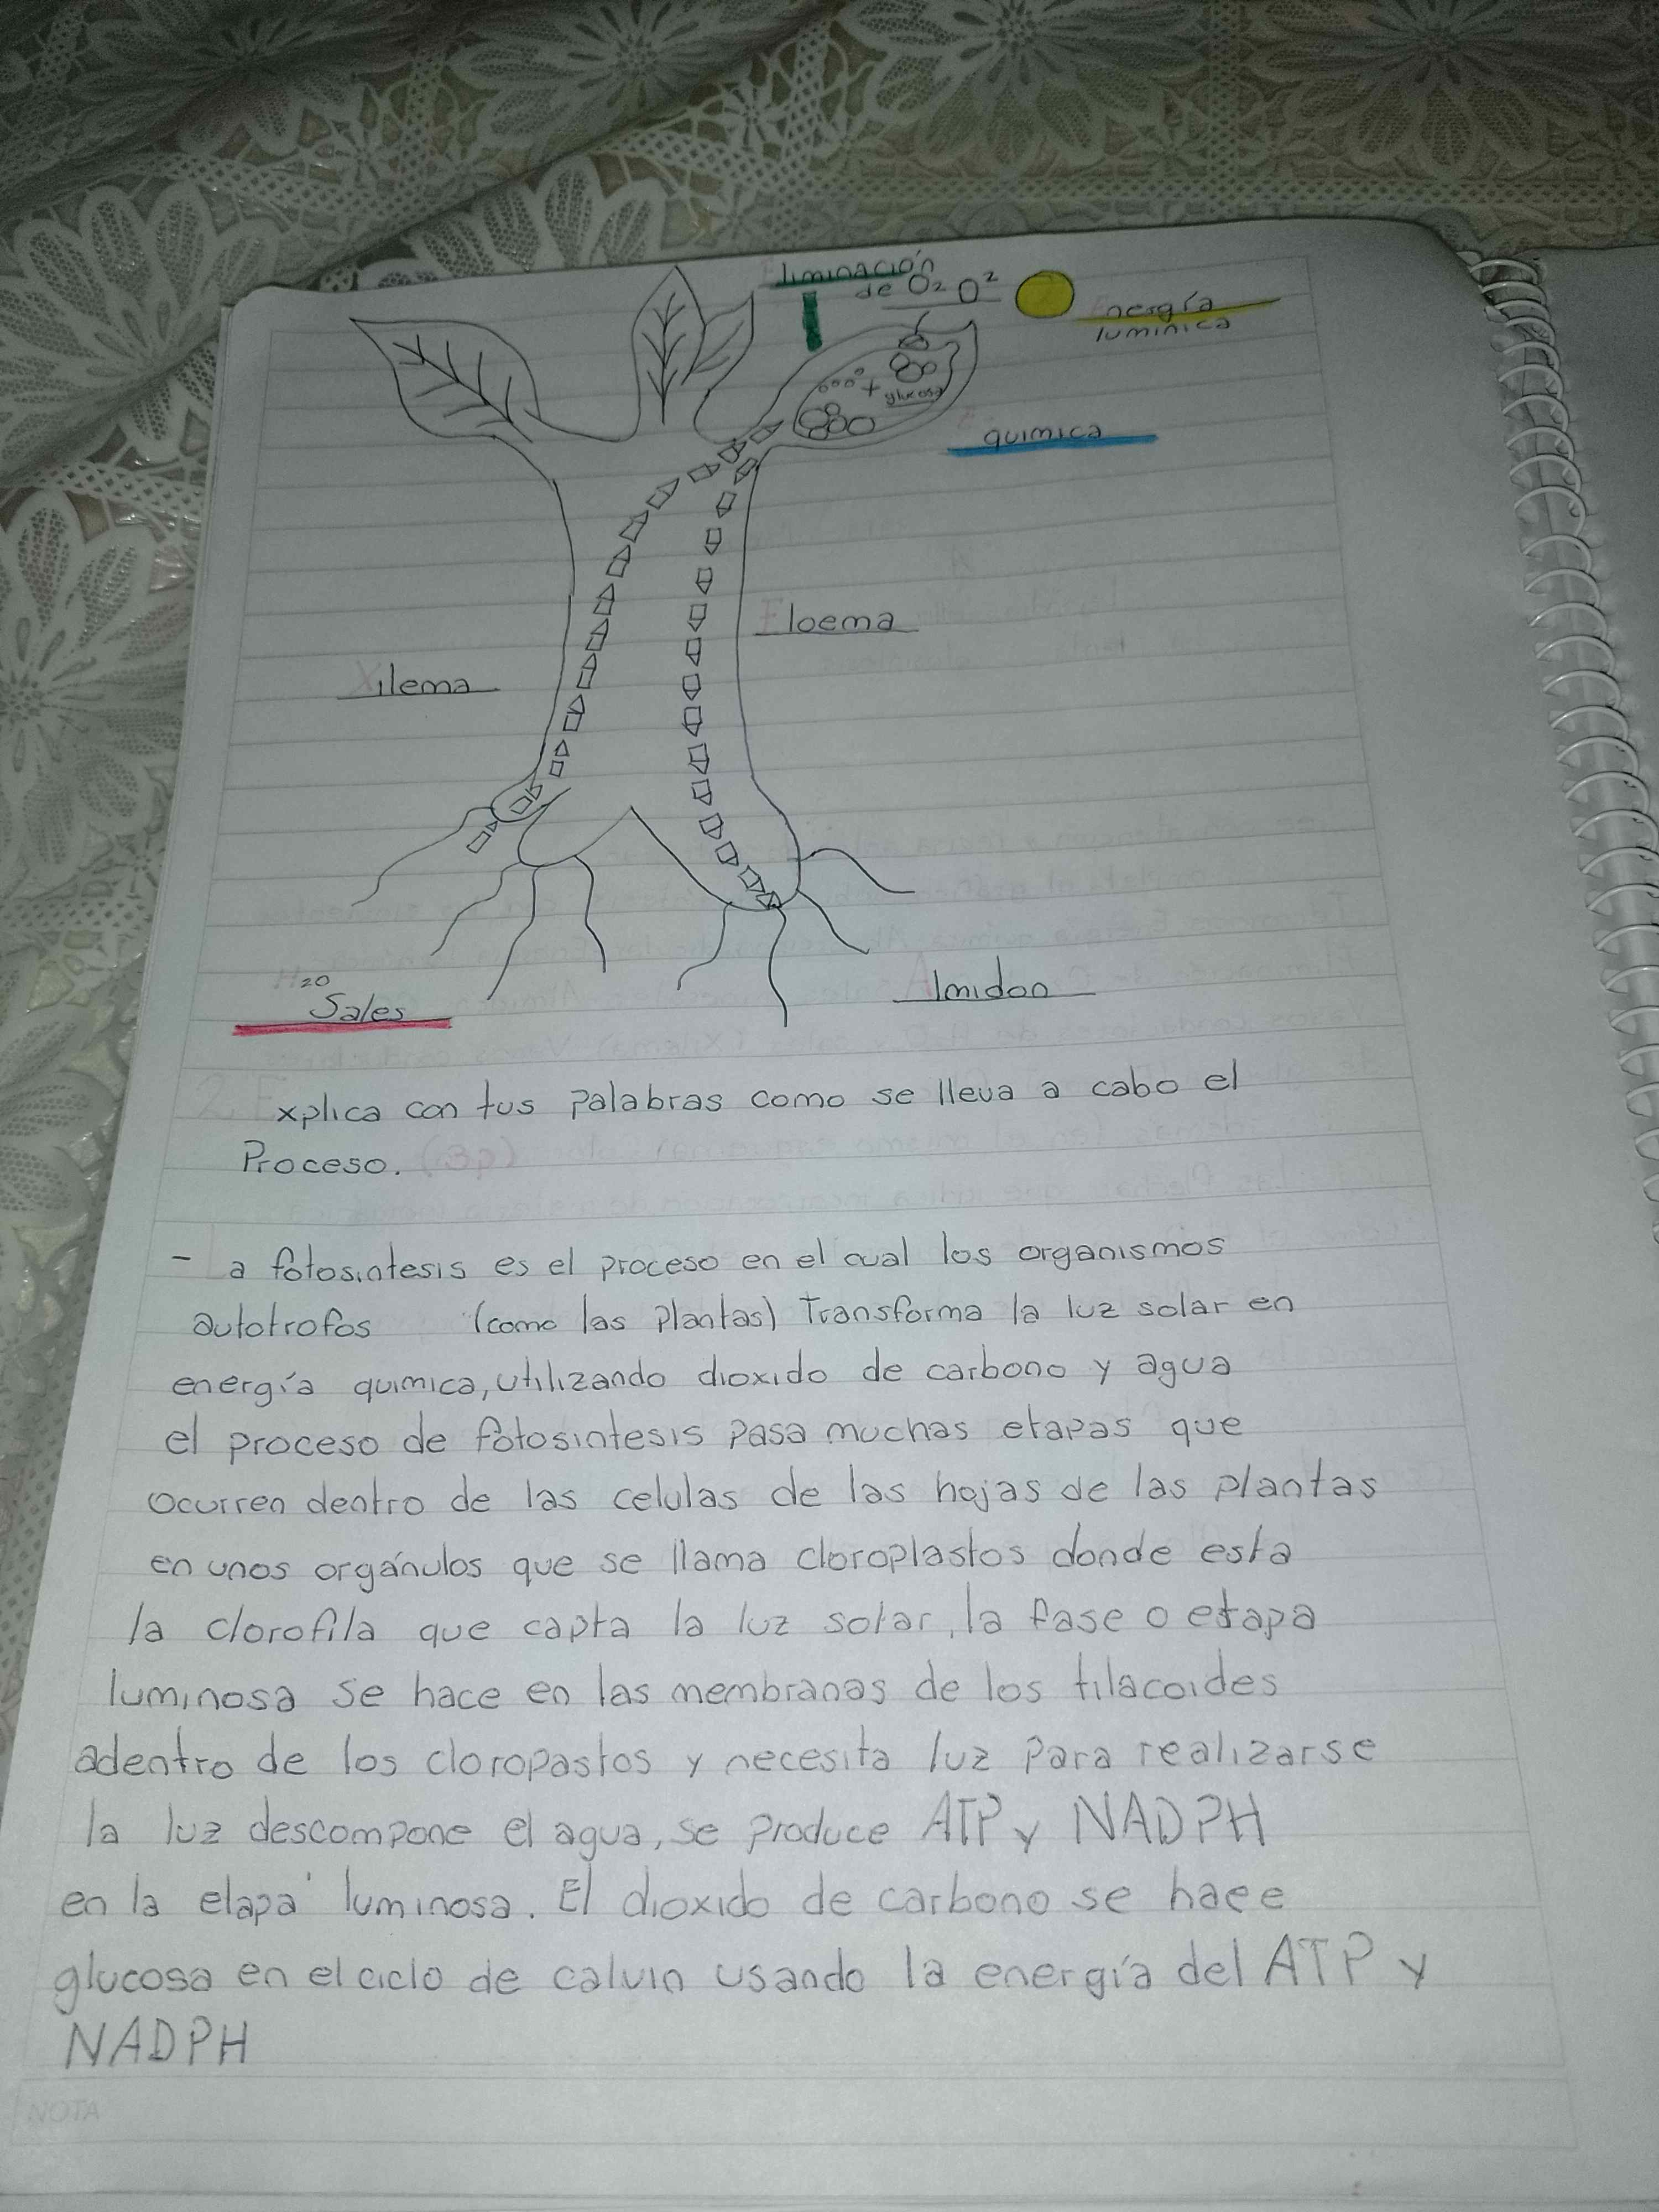 Eliminación
de O₂ O²
Energía
lumínica
+
glucosa
E.
quimica
Floema
Xilema
H20
Sales
Almidon
xplica con tus palabras como se lleva a cabo el
Proceso.
- La fotosintesis es el proceso en el cual los organismos
autotrofos (como las plantas) Transforma la luz solar en
energía quimica, utilizando dioxido de carbono y agua
el proceso de fotosintesis pasa muchas etapas que
ocurren dentro de las celulas de las hojas de las plantas
en unos orgánulos que se llama cloroplastos donde esta
la clorofila que capta la luz solar, la fase o etapa
luminosa se hace en las membranas de los tilacoides
adentro de los cloropastos y necesita luz para realizarse
la luz descompone el agua, se produce ATP y NADPH
en la elapa luminosa. El dioxido de carbono se hace
glucosa en el ciclo de calvin usando la energía del ATP y
NADPH
NOTA